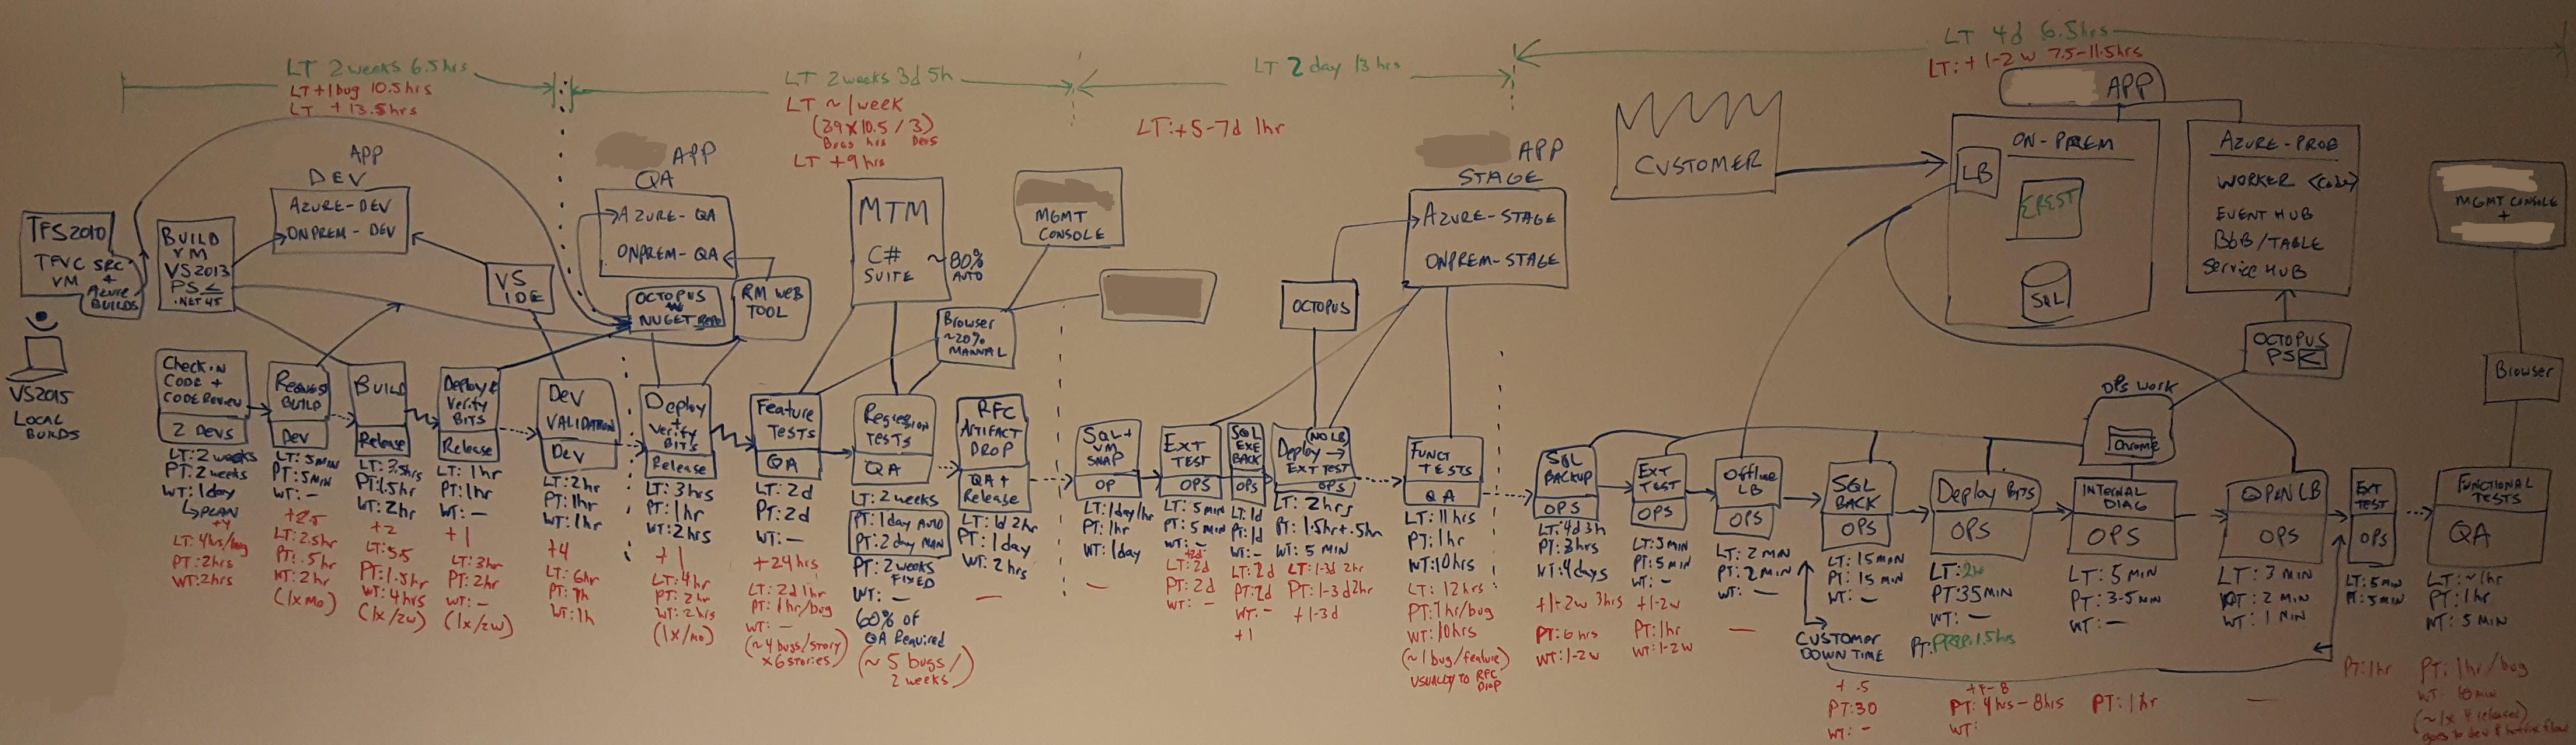 LT 2 weeks 6.5hrs
LT +1bug 10.5hrs
LT + 13.5hrs
LT 2 weeks 3d 5h
LT ~ 1 week
(39 x 10.5 / 3)
Bugs hrs Devs
LT +9 hrs
LT 2 day 13 hrs
LT:+5-7d 1hr
LT 4d 6.5hrs
LT: + 1-2 w 7.5-11.5hrs
TFS2010
TFVC SRC
VM +
Azure
BUILDS
VS2015
LOCAL
BUILDS
BUILD
VM
VS2013
PS
.NET 45
APP
DEV
AZURE-DEV
ONPREM-DEV
VS
IDE
APP
QA
AZURE-QA
ONPREM-QA
OCTOPUS
NUGET REPO
RM WEB
TOOL
MTM
C#
SUITE
~80%
AUTO
MGMT
CONSOLE
Browser
~20%
MANUAL
APP
STAGE
AZURE-STAGE
ONPREM-STAGE
OCTOPUS
CUSTOMER
APP
ON-PREM
LB
SQL
AZURE-PROD
WORKER <Code>
EVENT HUB
BLOB/TABLE
Service HUB
OCTOPUS
PSR
MGMT CONSOLE
+
Browser
OPS WORK
Chrome
Check-in
CODE +
CODE REVIEW
2 DEVS
LT: 2 weeks
PT: 2 weeks
WT: 1day
PLAN
+4
LT: 4hrs/bug
PT: 2hrs
WT: 2hrs
Request
BUILD
Dev
LT: 5MIN
PT: 5MIN
WT: -
+2.5
LT: 2.5hr
PT: .5hr
WT: 2hr
(1x mo)
BUILD
Release
LT: 3.5hrs
PT: 1.5hr
WT: 2hr
+2
LT: 5.5
PT: 1.5hr
WT: 4hrs
(1x/2w)
Deploy &
Verify
BITS
Release
LT: 1hr
PT: 1hr
WT: -
+1
LT: 3hr
PT: 2hr
WT: -
(1x/2w)
Dev
VALIDATION
Dev
LT: 2hr
PT: 1hr
WT: 1hr
+4
LT: 6hr
WT: 1h
Deploy
+
Verify
BITS
Release
LT: 3hrs
PT: 1hr
WT: 2hrs
+1
LT: 4hr
PT: 2hr
WT: 2hrs
(1x/mo)
Feature
TESTS
QA
LT: 2d
PT: 2d
WT: -
+24hrs
LT: 2d 1hr
PT: 1hr/bug
WT: -
(~4 bugs/story
x 6 stories)
Regression
TESTS
QA
LT: 2 weeks
PT: 1day AUTO
PT: 2 day MAN
PT: 2 weeks
FIXED
WT: -
60% of
QA Required
(~5 bugs/
2 weeks)
RFC
ARTIFACT
DROP
QA +
Release
LT: 1d 2hr
PT: 1day
WT: 2hrs
-
SQL +
VM
SNAP
OP
LT: 1day 1hr
PT: 1hr
WT: 1day
-
EXT
TEST
OPS
LT: 5 MIN
PT: 5 MIN
WT: -
+2d
LT: 2d
PT: 2d
WT: -
SQL
EXE
BACK
OPS
LT: 1d
PT: 1d
WT: -
LT: 2d
PT: 2d
WT: -
+1
NO LB
Deploy →
EXT TEST
OPS
LT: 2hrs
PT: 1.5hr+.5hr
WT: 5 MIN
LT: 1-3d 2hr
PT: 1-3d2hr
+1-3d
FUNCT
TESTS
QA
LT: 11hrs
PT: 1hr
WT: 10hrs
LT: 12hrs
PT: 1hr/bug
WT: 10hrs
(~1 bug/feature)
USUALLY TO RFC
DROP
SQL
BACKUP
OPS
LT: 4d 3h
PT: 3hrs
WT: 4days
+1-2w 3hrs
PT: 6 hrs
WT: 1-2w
EXT
TEST
OPS
LT: 5MIN
PT: 5MIN
WT: -
+1-2w
PT: 1hr
WT: 1-2w
Offline
LB
OPS
LT: 2 MIN
PT: 2 MIN
WT: -
-
SQL
BACK
OPS
LT: 15 MIN
PT: 15 MIN
WT: -
CUSTOMER
DOWN TIME
+ .5
PT: 30
WT: -
Deploy BITS
OPS
LT: 2hr
PT: 35MIN
WT: -
PT: PREP: 1.5hrs
+4-8
PT: 4hrs-8hrs
WT:
INTERNAL
DIAG
OPS
LT: 5 MIN
PT: 3-5 MIN
WT: -
PT: 1hr
OPEN LB
OPS
LT: 3 MIN
PT: 2 MIN
WT: 1 MIN
-
EXT
TEST
OPS
LT: 5MIN
PT: 5MIN
PT: 1hr
FUNCTIONAL
TESTS
QA
LT: ~1hr
PT: 1hr
WT: 5 MIN
PT: 1hr/bug
WT: 10 MIN
(~1x 4 releases)
goes to dev & hotfix flow